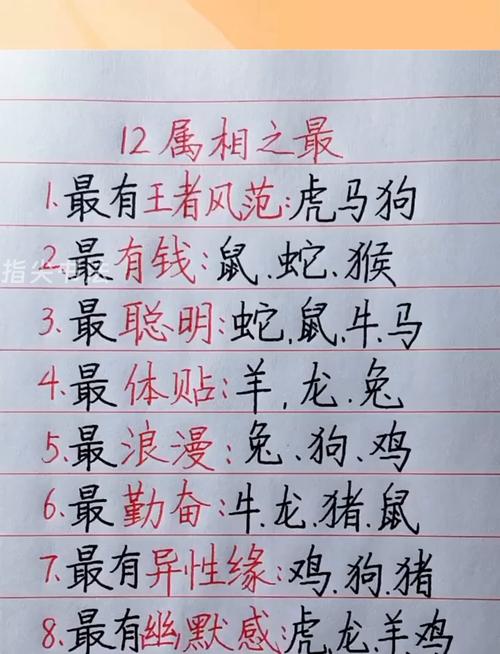 12属相之最
1.最有王者风范:虎马狗
2.最有钱:鼠.蛇.猴
3.最聪明:蛇,鼠,牛.马
4.最体贴:羊,龙.兔
5.最浪漫:兔.狗.鸡
6.最勤奋:牛.龙.猪.鼠
7.最有异性缘:鸡.狗.猪
8.最有幽默感:虎,龙.羊鸡
指尖